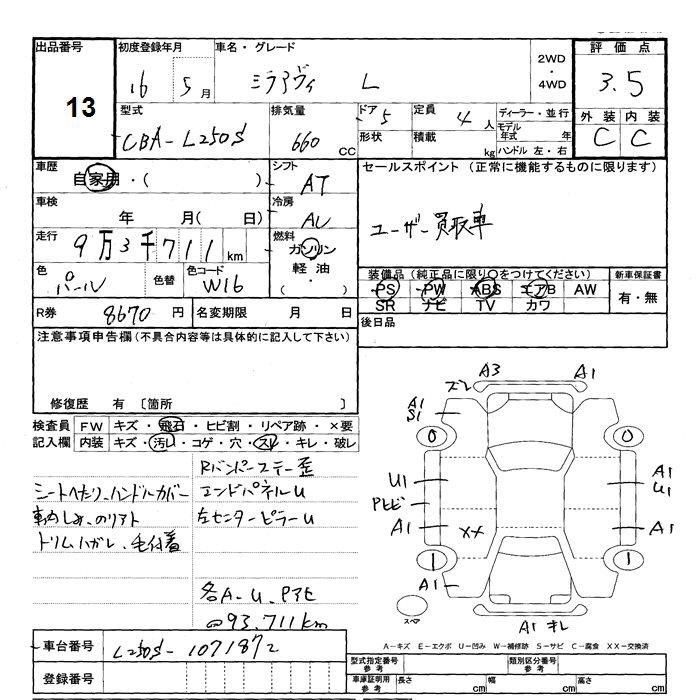 出品番号 初度登録年月 車名・グレード 2WD・4WD 評価点
13 16 5月 ミラアヴィ L 3.5
型式 排気量 ドア 定員 ディーラー・並行 外装 内装
CBA-L250S 660 CC 5 4人 モデル年式 年 C C
形状 積載 kg ハンドル 左・右
車歴 シフト セールスポイント (正常に機能するものに限ります)
自家用・( ) AT
車検 冷房
年 月( 日) AC ユーザー買取車
走行 燃料
9万3千711km ガソリン
色 色替 色コード 軽油 装備品(純正品に限り○をつけてください) 新車保証書
パール W16 ・( ) PS PW ABS エアB AW 有・無
SR ナビ TV カワ
R券 8670円 名変期限 月 日 後日品
注意事項申告欄(不具合内容等は具体的に記入して下さい)
修復歴 有 〔箇所 〕
検査員 FW キズ・飛石・ヒビ割・リペア跡・×要
記入欄 内装 キズ・汚れ・コゲ・穴・スレ・キレ・破レ
Rバンパーステー歪
シートヘたり、ハンドルカバー エンドパネルU
左センターピラーU
トリムハガレ、毛付着
各A-U、Pアヒ
@93,711km
A3 A1
ズレ
A1
S1
0 0
U1 A1
U1
Pヒビ
A1 XX A1
1 1
A1
スペア A1 キレ
A-キズ E-エクボ U-凹み W-補修跡 S-サビ C-腐食 XX-交換済
車台番号 L250S-1071872
型式指定番号 参考 類別区分番号 参考
登録番号 車庫証明用 参考 長さ cm 幅 cm 高さ cm